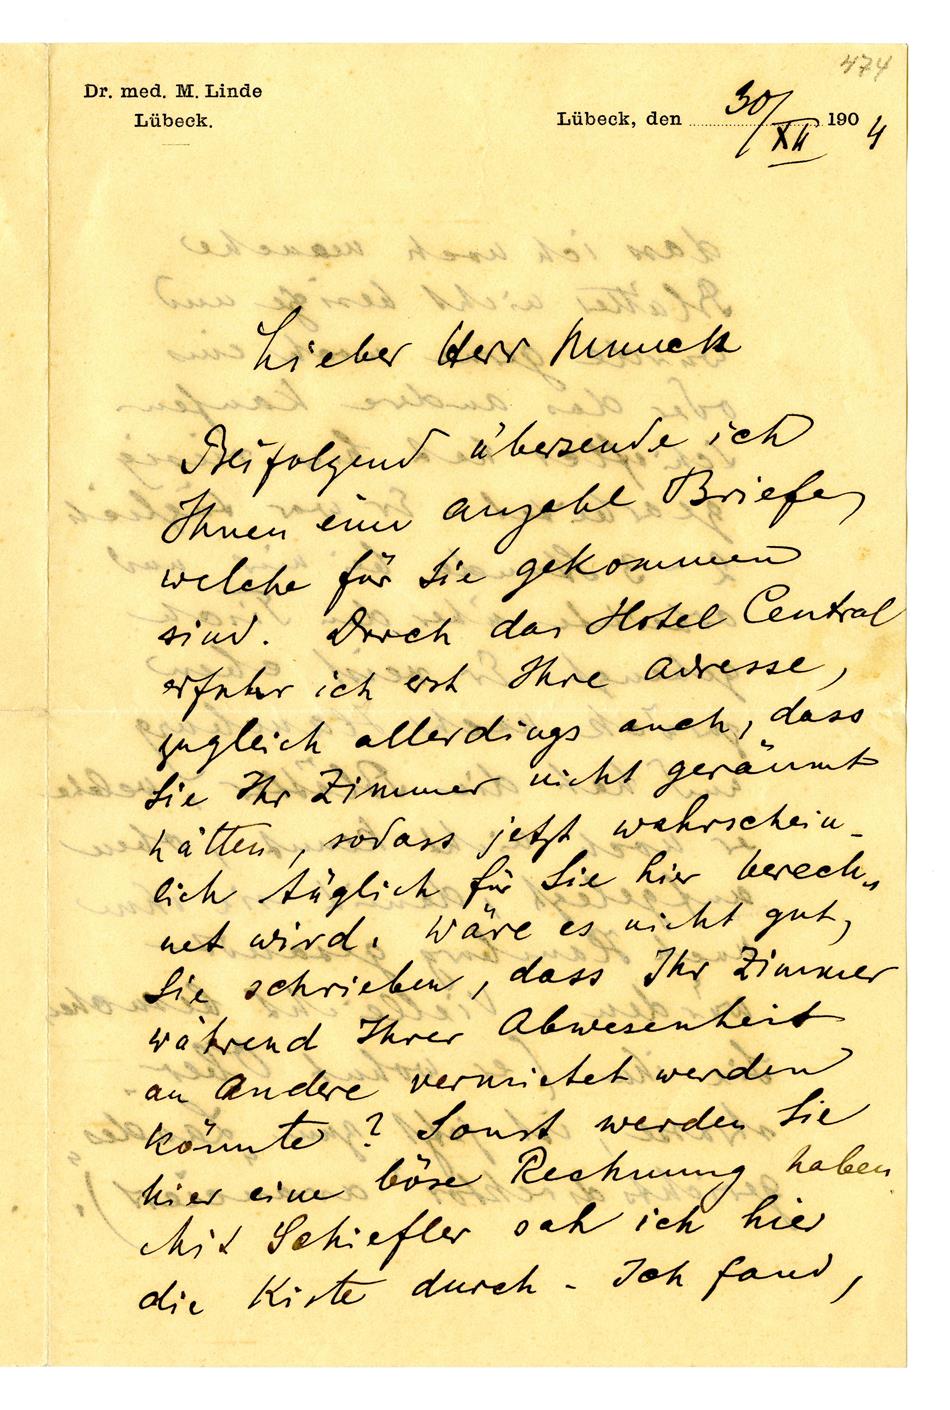 474
Dr. med. M. Linde
Lübeck.
Lübeck, den 30/XII 1904
Lieber Herr Munch
Beifolgend übersende ich
Ihnen eine Anzahl Briefe,
welche für Sie gekommen
sind. Durch das Hotel Central
erfuhr ich erst Ihre Adresse,
zugleich allerdings auch, dass
Sie Ihr Zimmer nicht geräumt
hätten, sodass jetzt wahrschein-
lich täglich für Sie hier berech-
net wird. Wäre es nicht gut,
Sie schrieben, dass Ihr Zimmer
während Ihrer Abwesenheit
an Andere vermietet werden
könnte? Sonst werden Sie
hier eine böse Rechnung haben
Mit Schiefler sah ich hier
die Kiste durch - Ich fand,